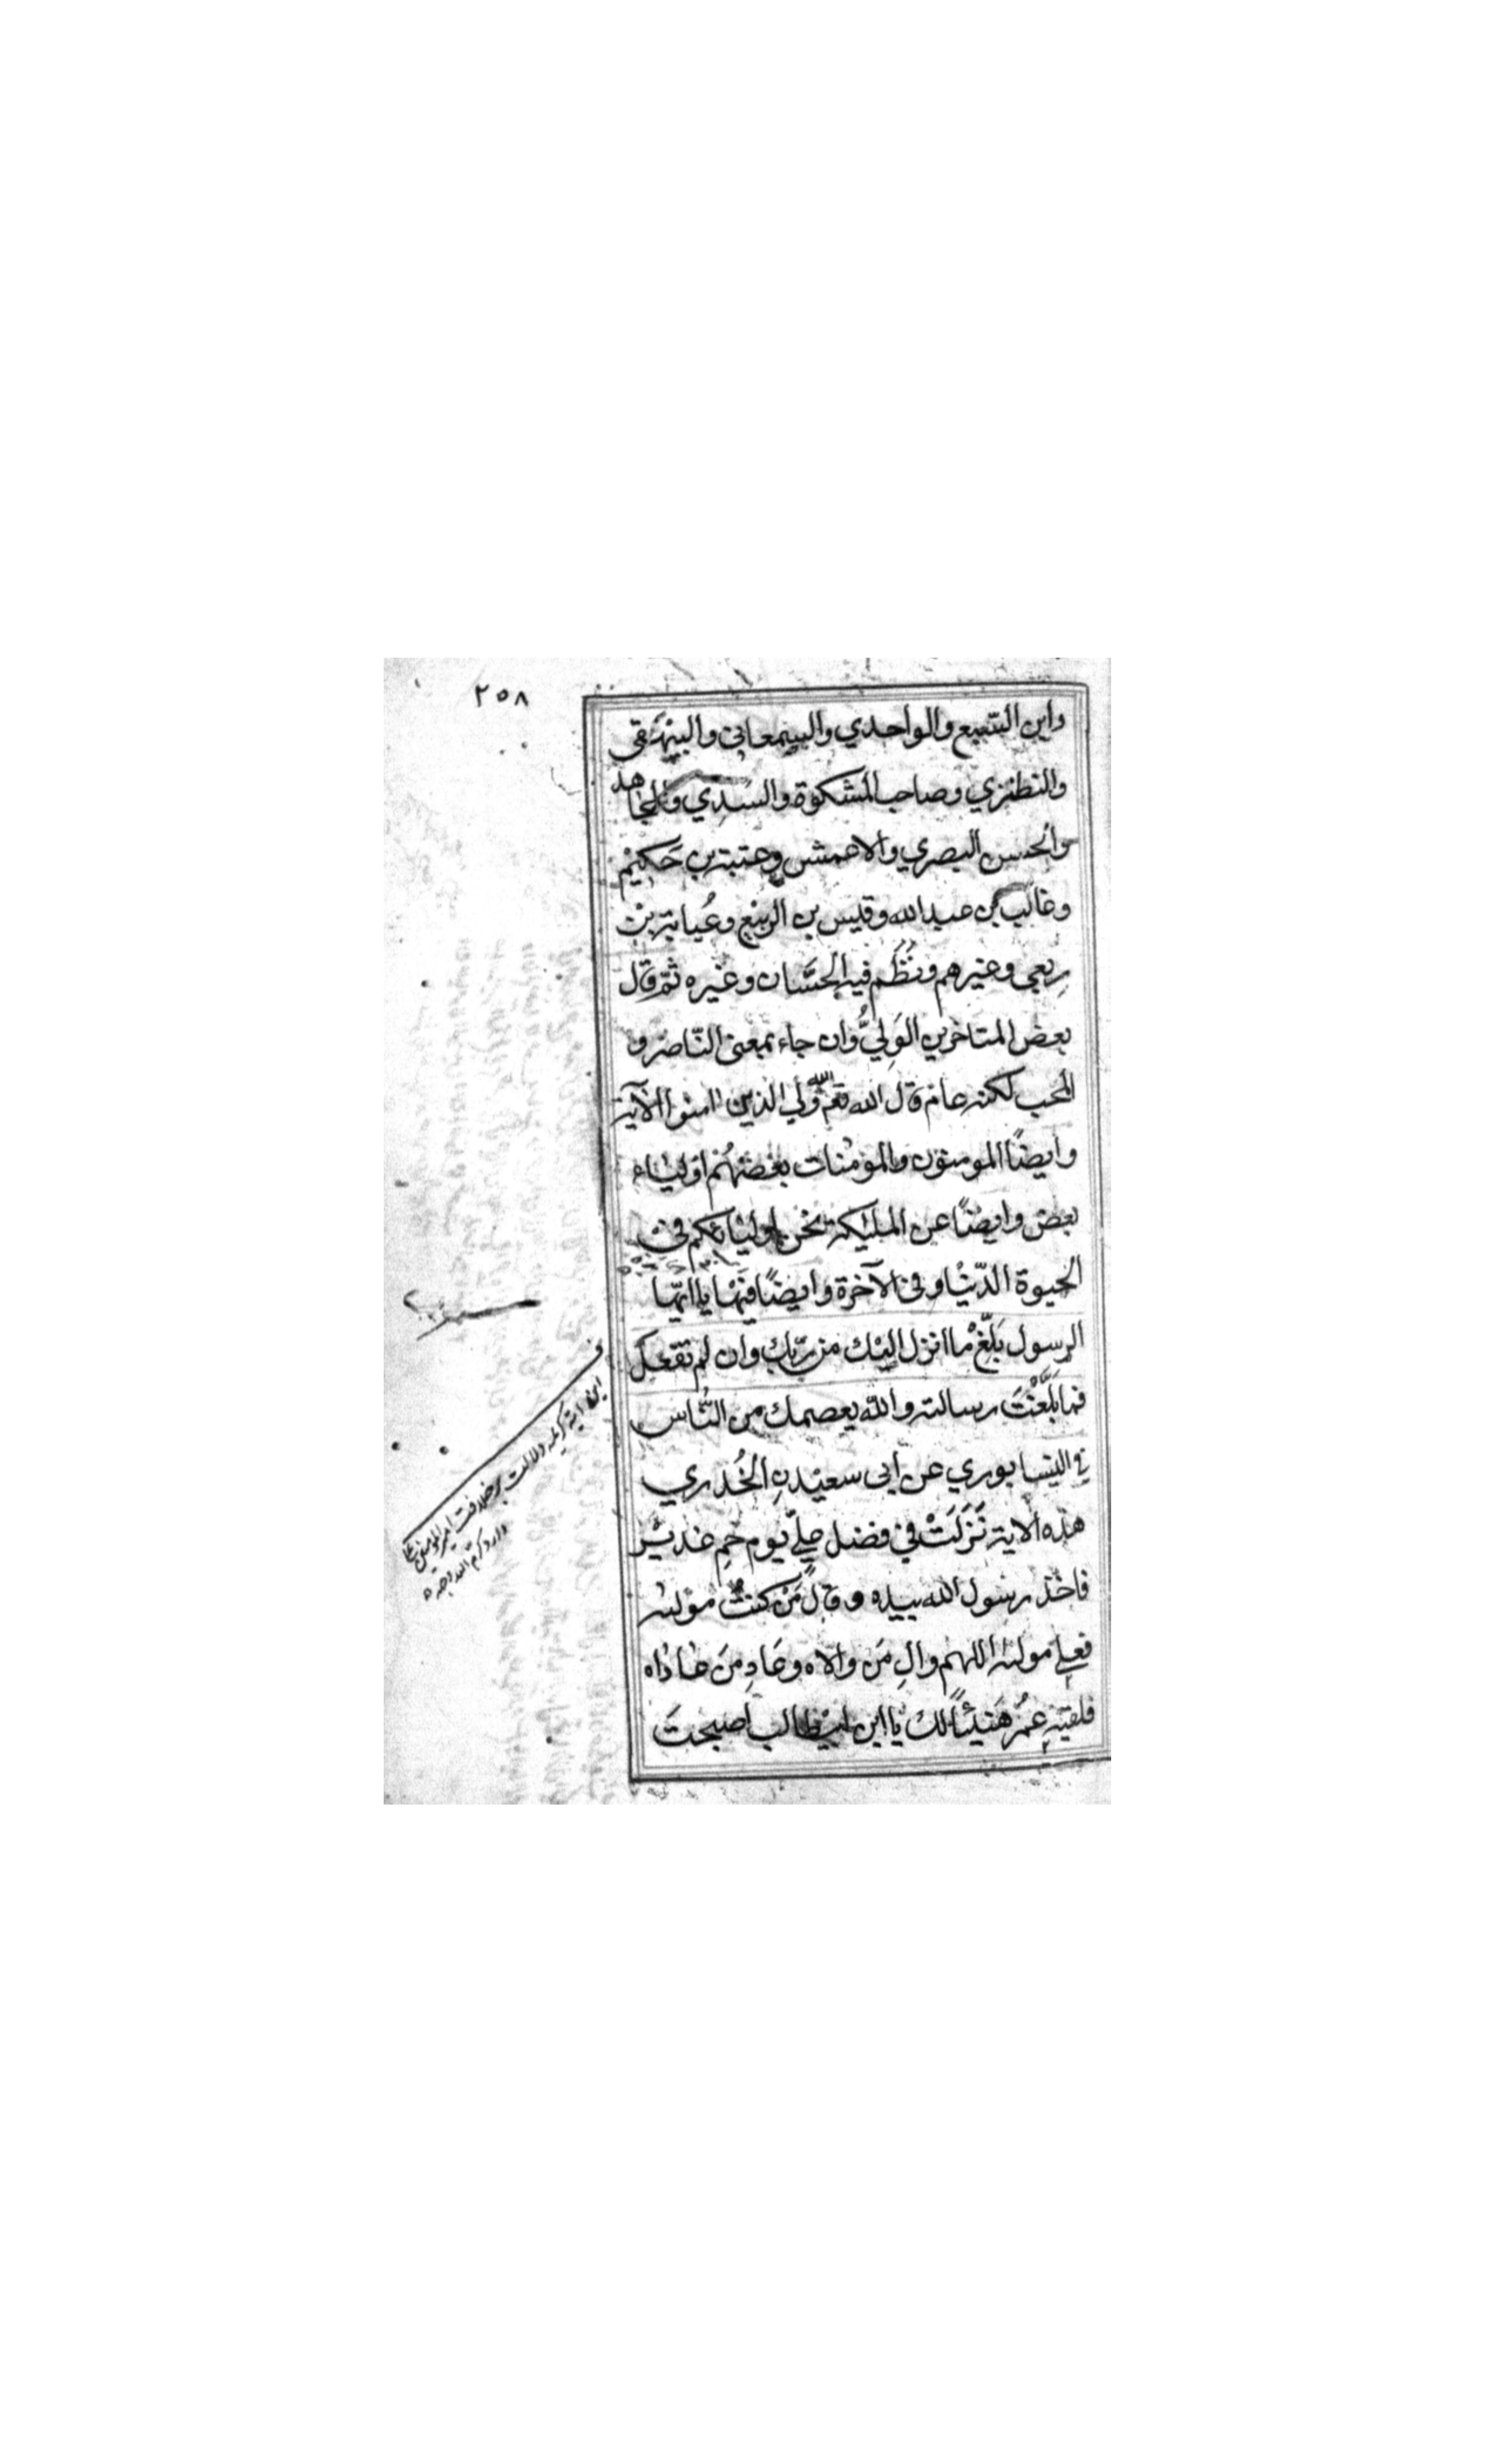 ٢٥٨
وابن البتيع والواحدي والسمعاني والبيهقي
والنطنزي وصاحب المشكوة والسدي والمجاهد
والحسن البصري والاعمش وعتبة بن حَكيْم
وغالب بن عبد الله وقيس بن الربيع وعُباية بنْ
رِبعي وغيرهم ونُظُم فيه الحسَّان وغيره ثمّ قال
بعض المتاخرين الوَلِيُّ وان جاء بمعنى النّاصر و
المحب لكنه عام قال الله تع الله وَلي الذين امنوا الآية
وايضًا المومنون والمؤمنات بعضهُم اوليٰاء
بعض وايضًا عن المليكة نحن اوليائكم في
الحيوة الدّنْيا وفي الآخرة وايضًا فيهَا يا ايّها
الرسول بَلّغْ ما انزل اليْك من رّبك وان لم تفعل
فما بَلَّغْتَ رسالته والله يعصمك من النّاس
في النيسابوري عن أبى سعيْدنِ الخُدري
هذه الاية نَزَلَتْ في فضل عليّ يوم خمِ غديْر
فاخذ رسول الله بيده وقال مَنْ كنتُ موليٰه
فعلي موليٰه اللهم والِ مَن والاه وعَادِ مَن عاداه
فلقيَه عمرُ هَنيئًا لك يا ابن ابيطالب اصبحتَ
اين اية كريمه دلالت بر خلافت امير المومنين علي
دارد كرم الله وجهه